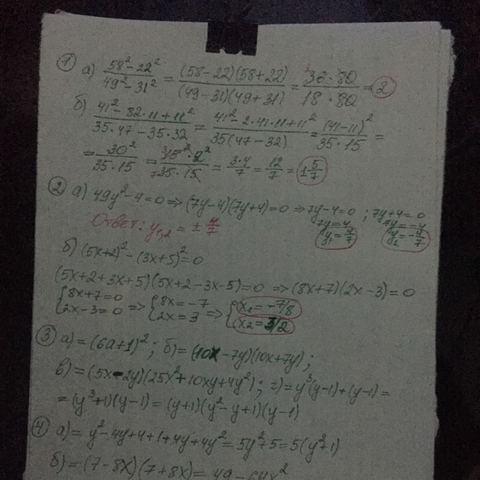 1) а) (58²-22²)/(49²-31²) = ((58-22)(58+22))/((49-31)(49+31)) = (36·80)/(18·80) = 2
б) (41²-82·11+11²)/(35·47-35·32) = (41²-2·41·11+11²)/(35(47-32)) = (41-11)²/(35·15) =
= 30²/(35·15) = (15²·2²)/(35·15) = (3·4)/7 = 12/7 = 1 5/7
2) а) 49y²-4=0 => (7y-4)(7y+4)=0 => 7y-4=0 ; 7y+4=0
7y=4 7y=-4
Ответ: y₁,₂ = ± 4/7 y₁=4/7 y₂=-4/7
б) (5x+2)²-(3x+5)²=0
(5x+2+3x+5)(5x+2-3x-5)=0 => (8x+7)(2x-3)=0
{8x+7=0 => {8x=-7 => {x₁=-7/8
2x-3=0 2x=3 x₂=3/2
3) а)=(6a+1)²; б)=(10x-7y)(10x+7y);
в)=(5x-2y)(25x²+10xy+4y²); г)=y³(y-1)+(y-1)=
=(y³+1)(y-1)=(y+1)(y²-y+1)(y-1)
4) а)=y²-4y+4+1+4y+4y²=5y²+5=5(y²+1)
б)=(7-8x)(7+8x)=49-64x²